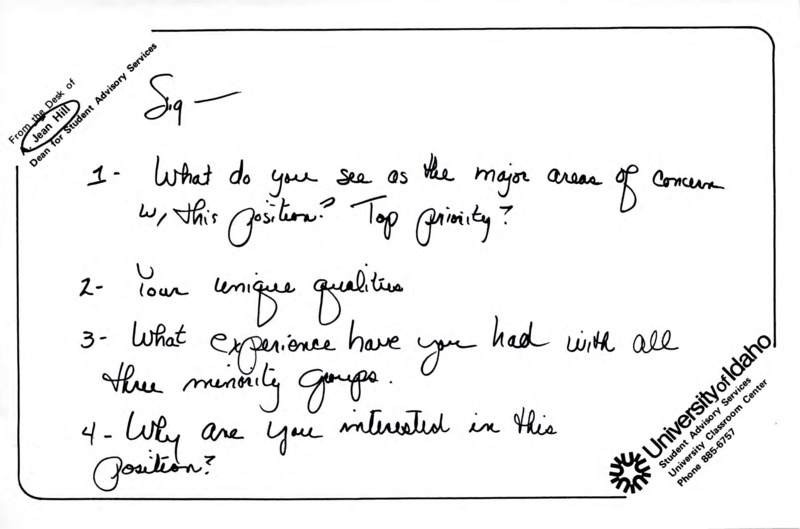 From the Desk of
Jean Hill
Dean for Student Advisory Services
Sig —
1- What do you see as the major areas of concern
w/ this position? Top priority?
2- Your unique qualities
3- What experience have you had with all
three minority groups.
4- Why are you interested in this
position?
University of Idaho
Student Advisory Services
University Classroom Center
Phone 885-6757